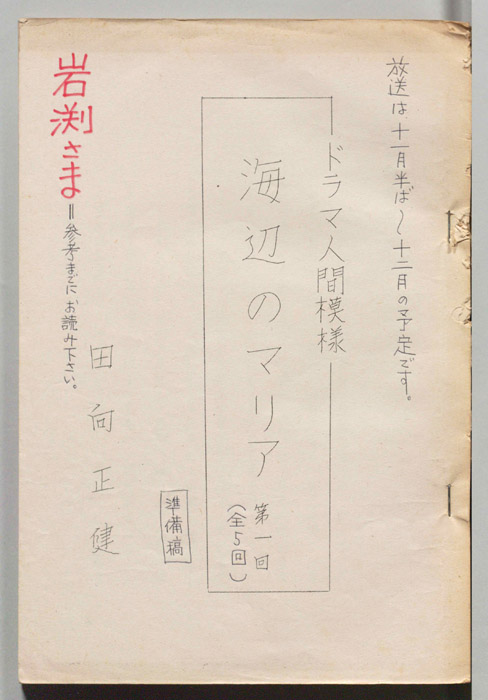 放送は、十一月半ば～十二月の予定です。
ドラマ人間模様
海辺のマリア
第一回
(全5回)
準備稿
田向正健
岩渕さま
＝参考までにお読み下さい。